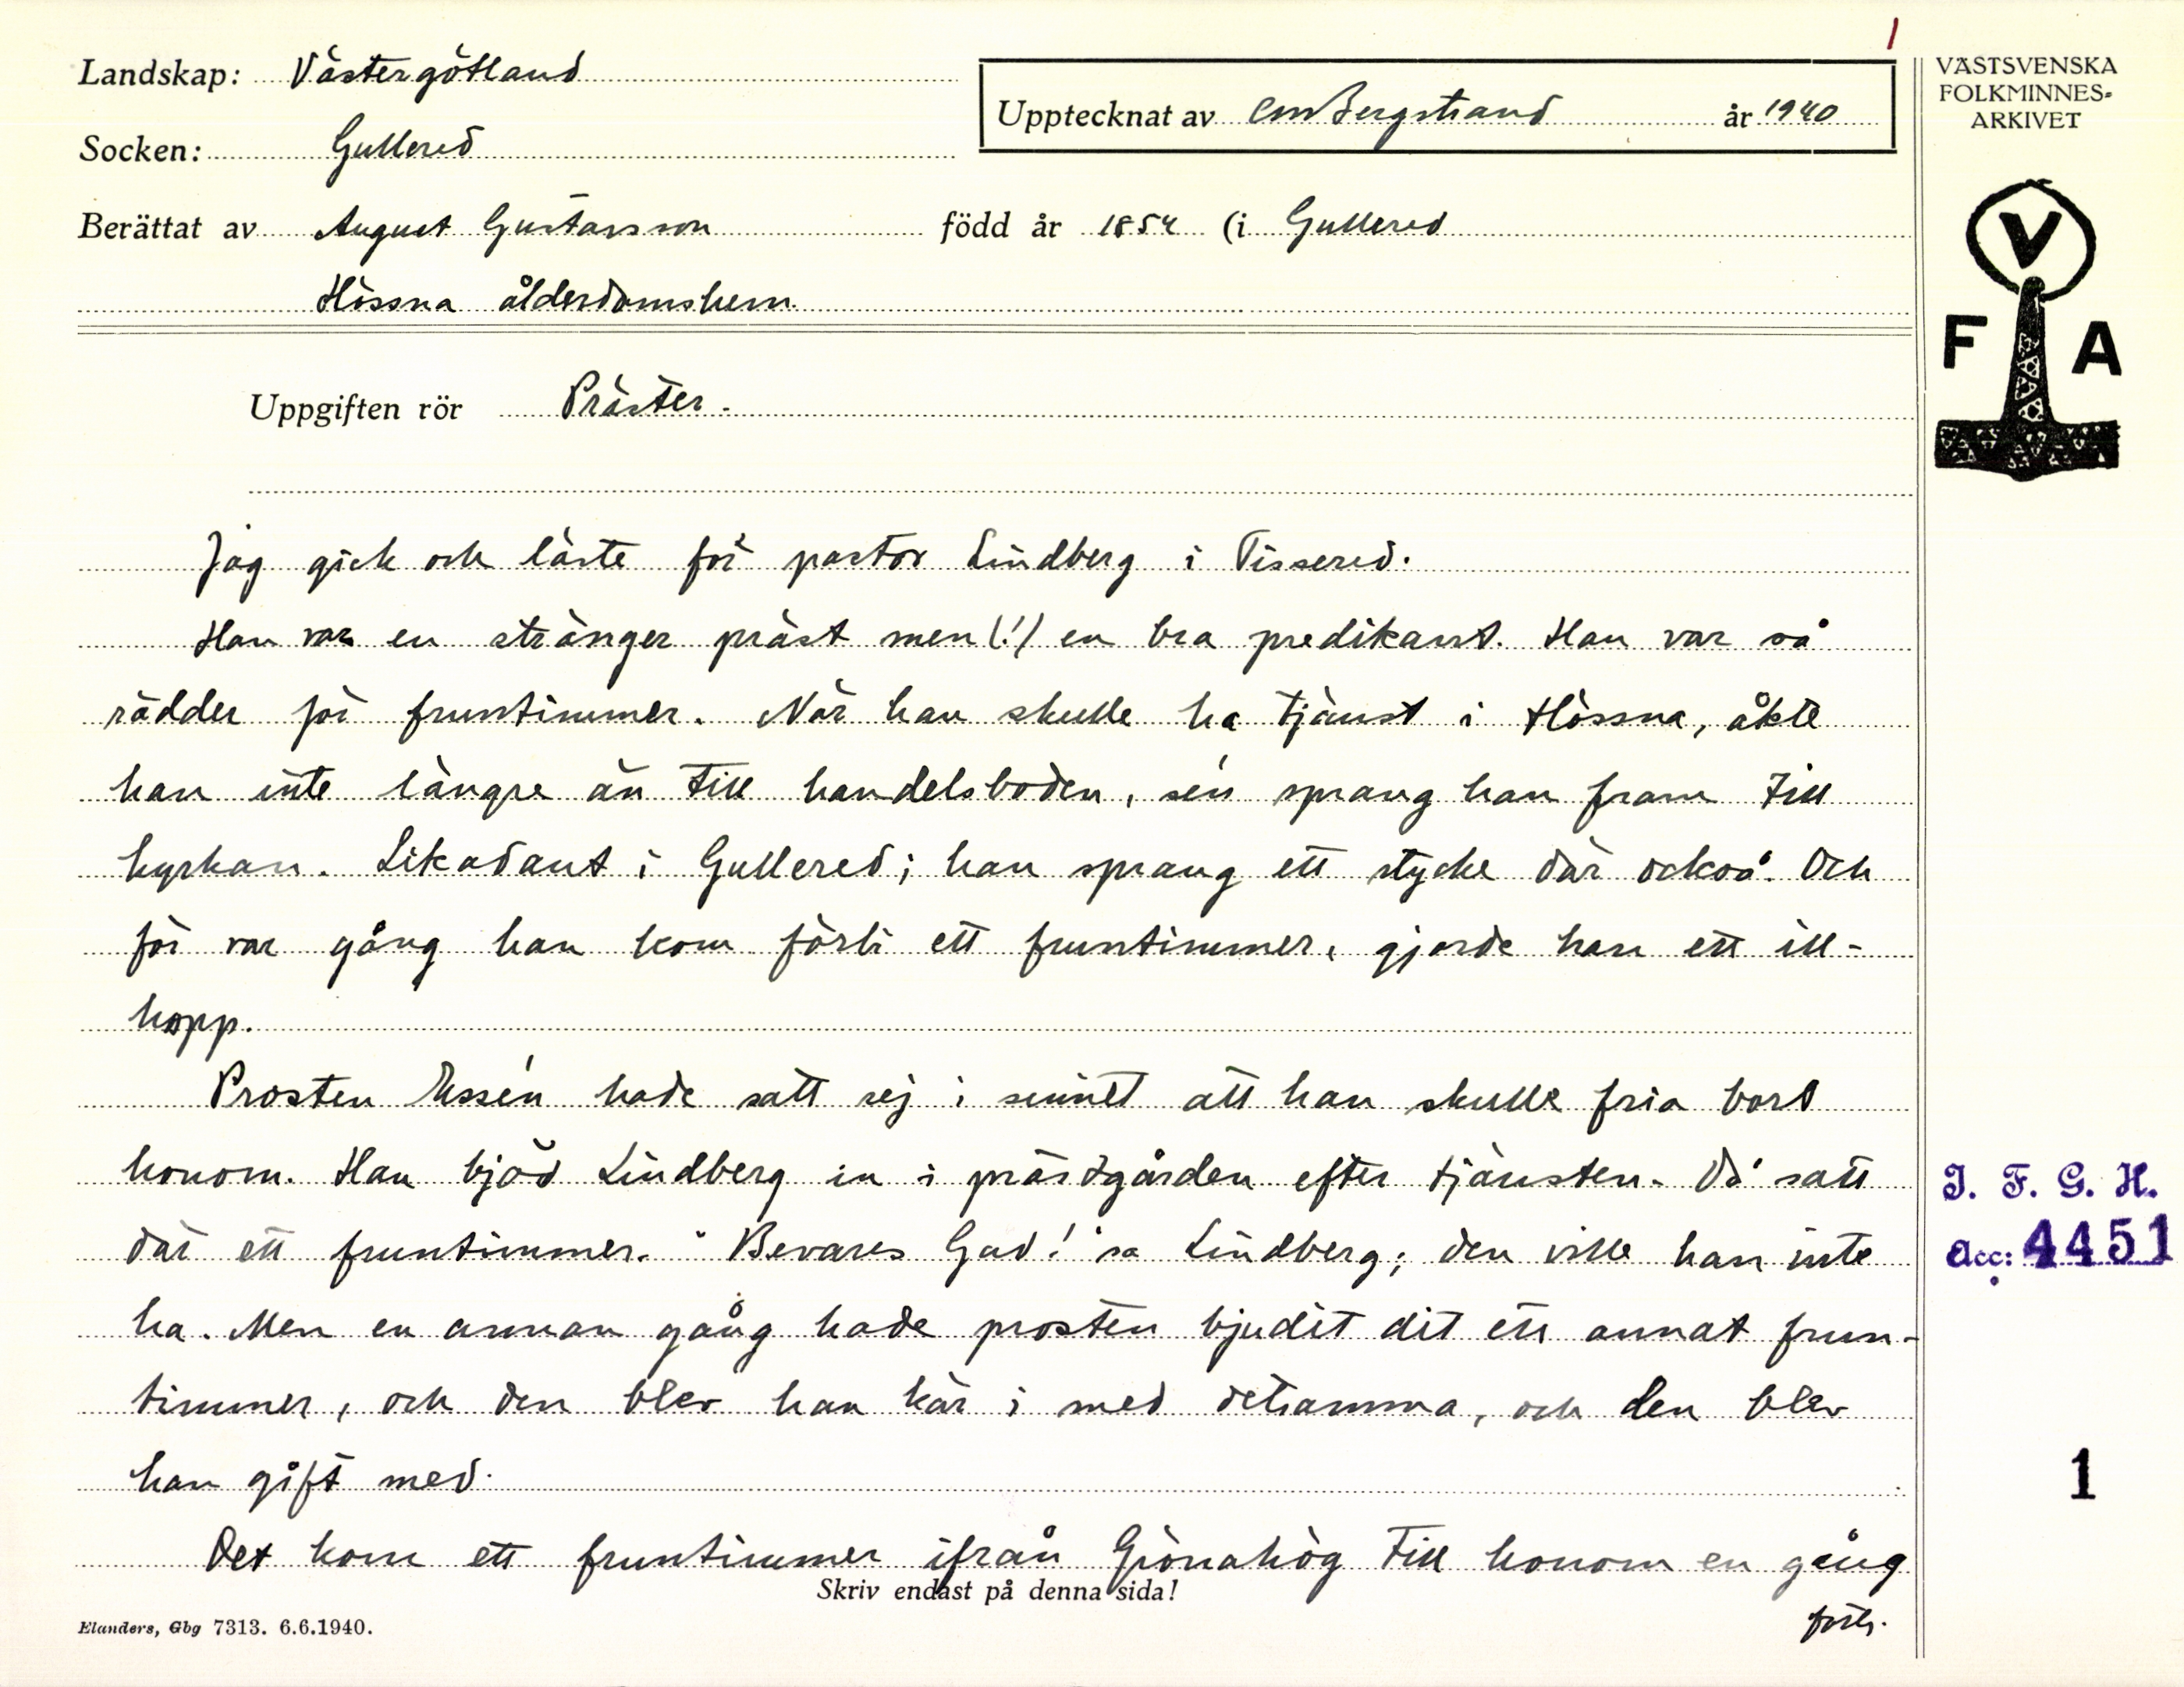 1
Landskap: Västergötland
Upptecknat av CM Bergstrand år 1940
VÄSTSVENSKA
FOLKMINNES-
ARKIVET
Socken: Gullered
Berättat av August Gustavsson född år 1854 (i Gullered
Hössna ålderdomshem.
V
F A
Uppgiften rör Präster.
Jag gick och läste för pastor Lindberg i Tissered.
Han var en stränger präst men (!) en bra predikant. Han var så
rädder för fruntimmer. När han skulle ha tjänst i Hössna, åkte
han inte längre än till handelsboden, sén sprang han fram till
kyrkan. Likadant i Gullered; han sprang ett stycke där också. Och
för var gång han kom förbi ett fruntimmer, gjorde han ett ill-
hopp.
Prosten Essén hade satt sej i sinnet att han skulle fria bort
honom. Han bjöd Lindberg in i prästgården efter tjänsten. Då satt
där ett fruntimmer. "Bevares Gud!" sa Lindberg; den ville han inte
ha. Men en annan gång hade prosten bjudit dit ett annat frun-
timmer, och den blev han kär i med detsamma, och den blev
han gift med.
Det kom ett fruntimmer ifrån Grönahög till honom en gång
Skriv endast på denna sida!
forts.
Elanders, Gbg 7313. 6.6.1940.
I. F. G. H.
Acc: 4451
1